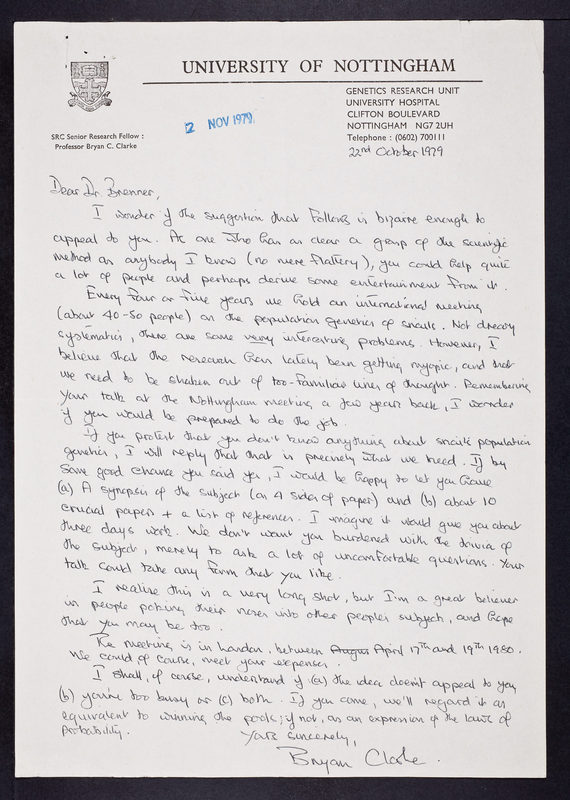 UNIVERSITY OF NOTTINGHAM
GENETICS RESEARCH UNIT
UNIVERSITY HOSPITAL
CLIFTON BOULEVARD
NOTTINGHAM NG7 2UH
Telephone : (0602) 700111
SRC Senior Research Fellow :
Professor Bryan C. Clarke
2 NOV 1979
22nd October 1979
Dear Dr. Brenner,
I wonder if the suggestion that follows is bizarre enough to
appeal to you. As one who has as clear a grasp of the scientific
method as anybody I know (no mere flattery), you could help quite
a lot of people and perhaps derive some entertainment from it.
Every four or five years we hold an international meeting
(about 40-50 people) on the population genetics of snails. Not dreary
systematics, there are some very interesting problems. However, I
believe that the research has lately been getting myopic, and that
we need to be shaken out of too-familiar lines of thought. Remembering
your talk at the Nottingham meeting a few years back, I wonder
if you would be prepared to do the job.
If you protest that you don't know anything about snails' population
genetics, I will reply that that is precisely what we need. If by
some good chance you said yes, I would be happy to let you have
(a) A synopsis of the subject (on 4 sides of paper) and (b) about 10
crucial papers + a list of references. I imagine it would give you about
three days work. We don't want you burdened with the trivia of
the subject, merely to ask a lot of uncomfortable questions. Your
talk could take any form that you like.
I realise this is a very long shot, but I'm a great believer
in people poking their noses into other peoples subject, and hope
that you may be too.
The meeting is in London, between August April 17th and 19th 1980.
We could of course, meet your expenses.
I shall, of course, understand if (a) the idea doesn't appeal to you
(b) you're too busy or (c) both. If you come, we'll regard it as
equivalent to winning the pools; if not, as an expression of the laws of
probability.
Yours sincerely,
Bryan Clarke.